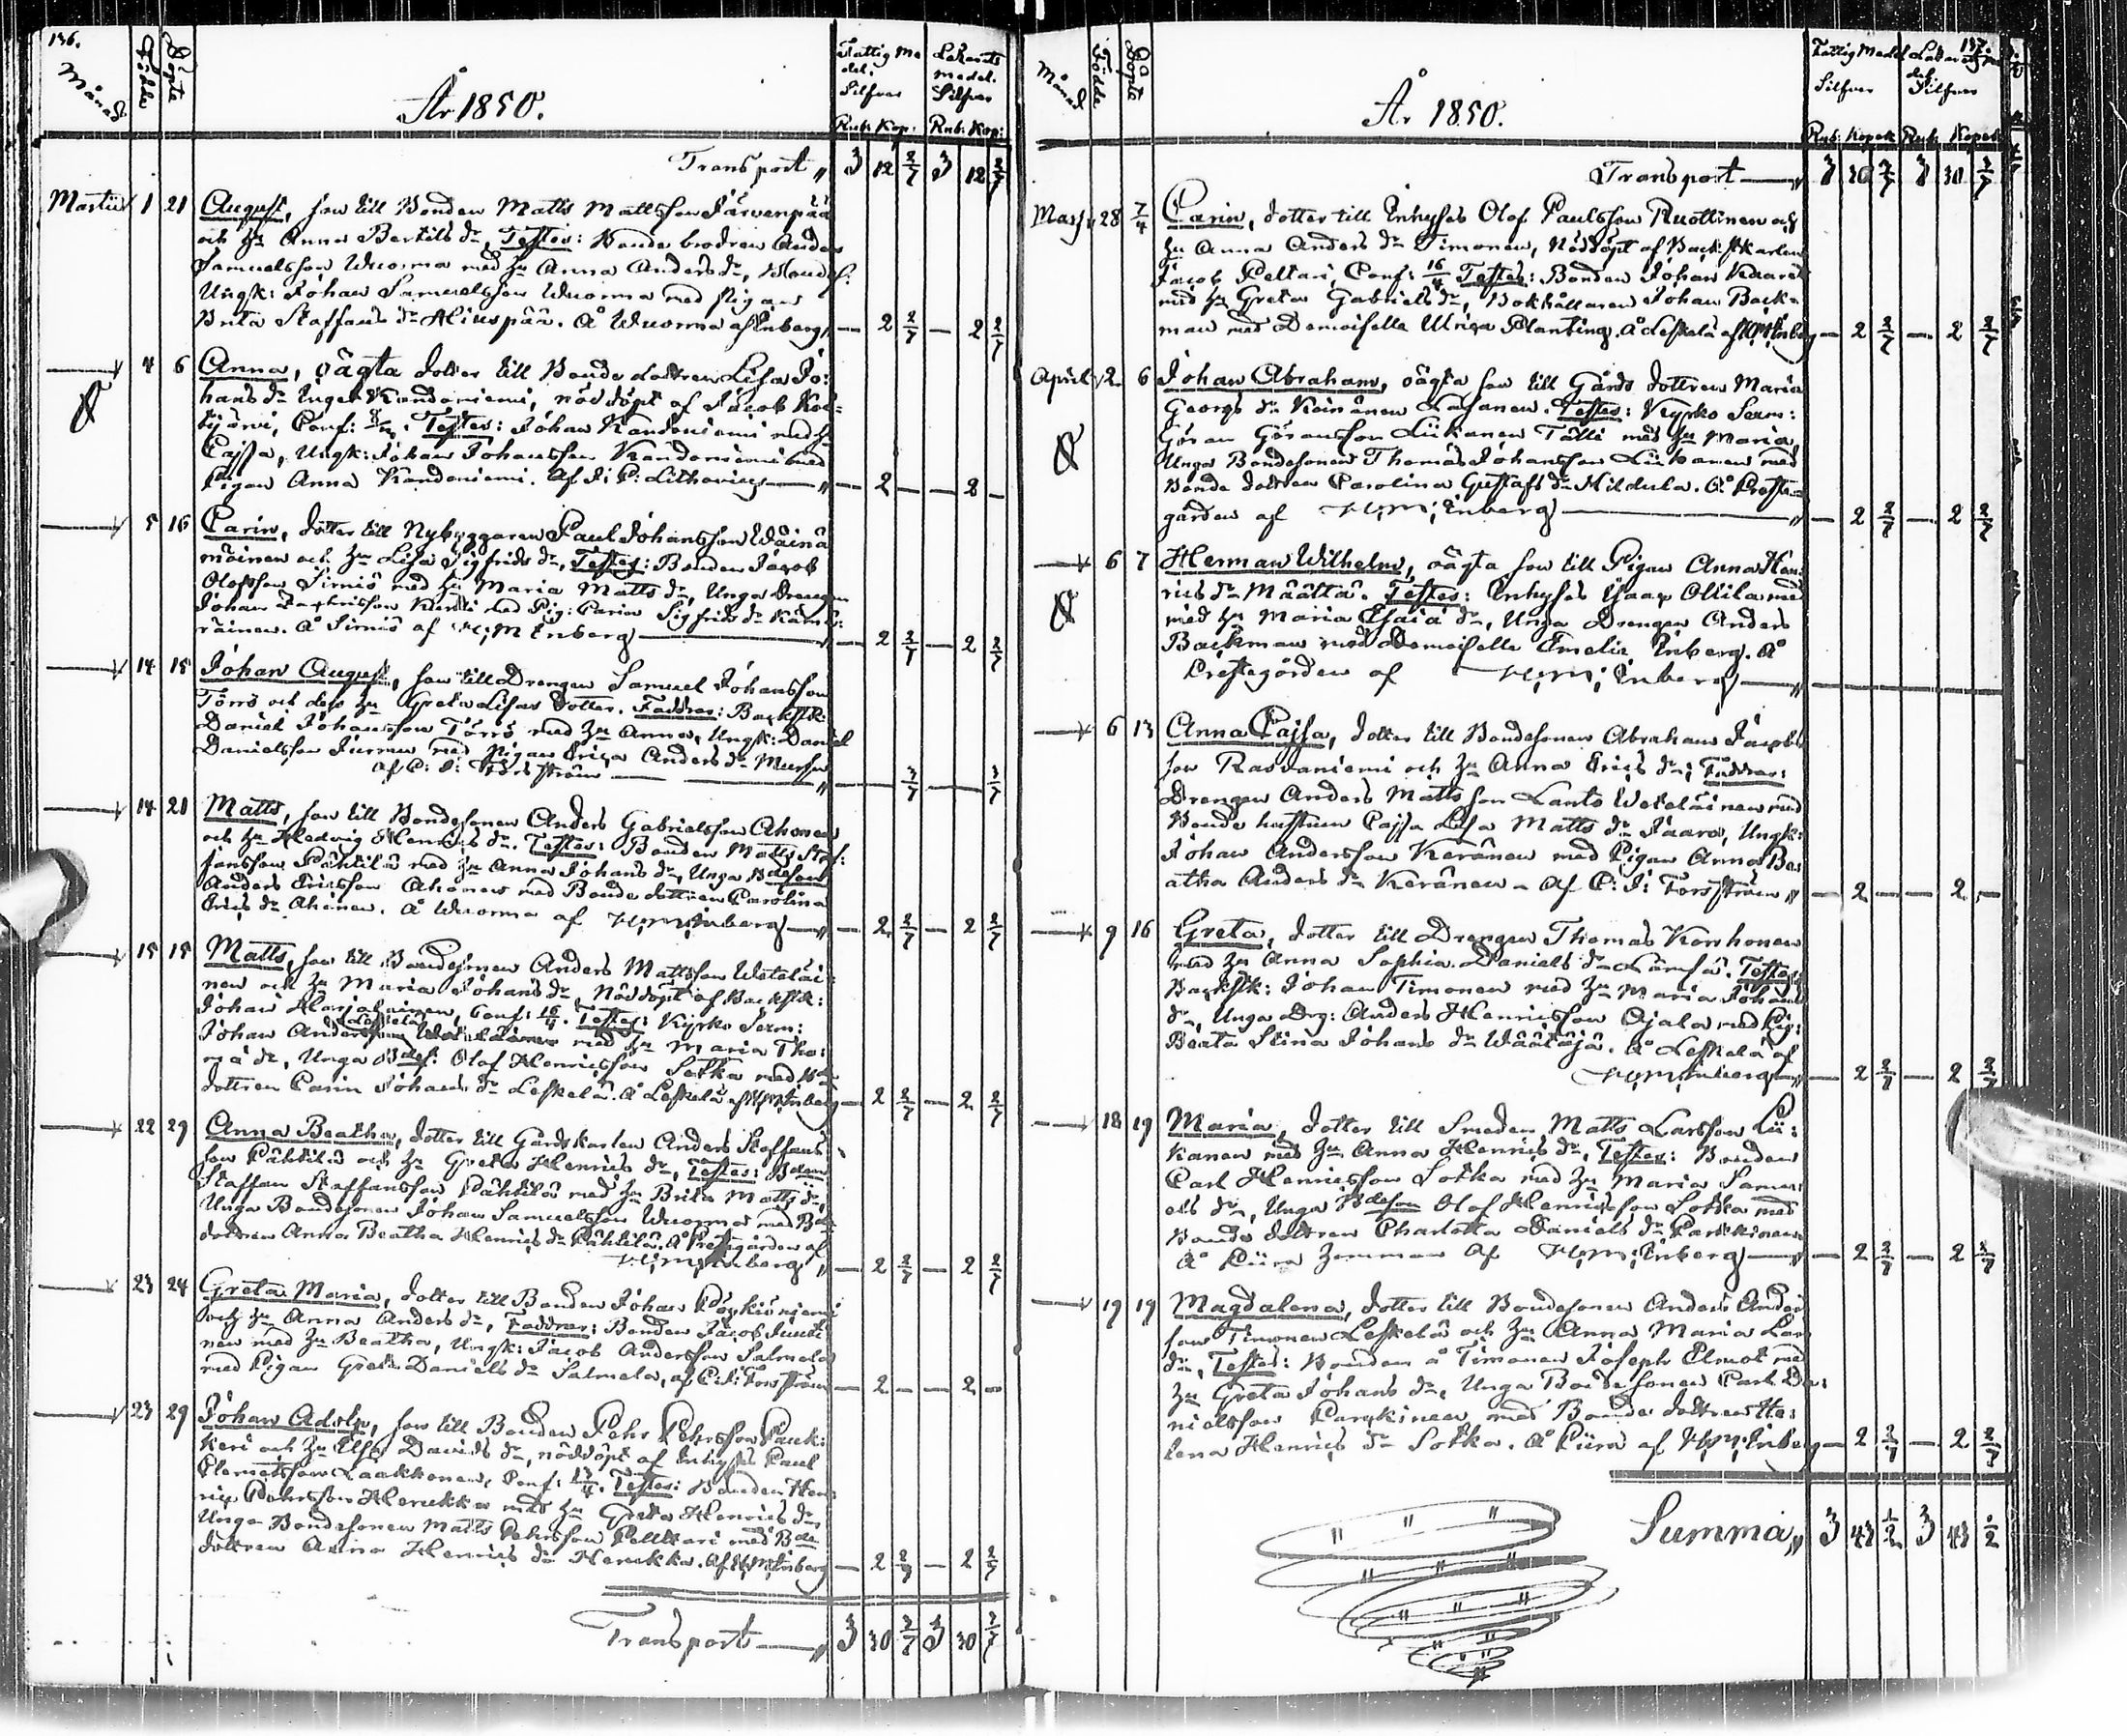 136.
Månad
Födde
Döpte
År 1850.
Fattig Me
del.
Silfver
Rub: Kop:
Lazaretts
medel.
Silfver
Rub: Kop:
Transport „ 3 12 2/7 3 12 2/7
Martii 1 21 August, son till Bonden Matts Mattsson Järvenpää
och hu Anna Bertils dr, Testes: Bonde brodren Anders
Samuelsson Wuorma med hu Anna Anders dr,
Ungk: Johan Samuelsson Wuorma med pigan
Brita Staffans dr Hiuspää. Å Wuorma af Enberg „ — 2 2/7 — 2 2/7
4 6 Anna, oägta dotter till Bonde dottren Lisa Jo:
hans dr Kandoniemi, nöddöpt af Jacob Koi=
tijärvi, Conf: Testes: Johan Kandoniemi med hu
Cajsa, Ungk: Johan Johansson Kandoniemi med
Pigan Anna Kandoniemi. af J: P: Lithovius — „ — 2 — — 2 —
5 16 Carin, dotter till Nybyggaren Paul Johansson Wäinä
möinen och hu Lisa Sigfrids dr, Testes: Bonden Jacob
Olofsson Sirniö med hu Maria Matts dr, Unga Drengen
Johan med Pig: Carin Sigfrids dr Kämä:
räinen. Å Sirniö af H: M: Enberg — — 2 2/7 — 2 2/7
14 15 Johan August, son till Drengen Samuel Johansson
Törrö och dess hu Greta Lisas dotter. Faddrar: Backstk:
Daniel Johansson Törrö med hu Anna, Ungk: Daniel
Danielsson Jurmu med Pigan Erica Anders dr Mursu
af C: J: Forsström — „ — 2/7 2/7
14 21 Matts, son till Bondesonen Anders Gabrielsson Ahonen
och hu Hedvig Henrics dr. Testes: Bonden Matts Stef:
fansson Pähkilä med hu Anna Johans dr, Unga Bdeson
Anders Ericsson Ahonen med Bonde dottren Carolina
Erics dr Ahonen. Å Wuorma af H: M: Enberg — „ — 2 2/7 — 2 2/7
15 15 Matts, son till Bondesonen Anders Mattsson Weteläi:
nen och hu Maria Johans dr, Nöddöpt af Backstk:
Johan Harjalainen, Conf: Testes: Kyrko Serm:
Johan Andersson med hu Maria Tho:
mä dr, Unga Bdes: Olof Henricsson Sotka med Bde
dottren Carin Johans dr Leskelä. Å Leskelä af H: M: Enberg — 2 2/7 — 2 2/7
22 29 Anna Beatha, dotter till Gårdskarlen Anders Staffans:
son Pähkilä och hu Greta Henrics dr, Testes: Bden
Staffan Staffansson Pähkilä med hu Brita Matts dr,
Unga Bondesonen Johan Samuelsson Wuorma med Bde
dottren Anna Beatha Henrics dr Pähkilä. Å Prestgården af
H: M: Enberg „ — 2 2/7 — 2 2/7
23 24 Greta Maria, dotter till Bonden Johan
och hu Anna Anders dr, Faddrar: Bonden Jacob Juuti
nen med hu Beatha, Ungk: Jacob Andersson Salmela
med Pigan Greta Daniels dr Salmela, af C: J: Forsström — 2 — — 2 —
23 29 Johan Adolp, son till Bonden Pehr Pehrsson Pauk:
keri och hu Elsa Davids dr, nöddöpt af Inhyses Paul
Clemetsson Laakkonen, Conf: Testes: Bonden Hen
ric Pehrsson Herukka med hu Greta Henrics dr,
Unga Bondesonen Matts Pehrsson Pelttari med Bde
dottren Anna Henrics dr Herukka. af H: M: Enberg — 2 2/7 — 2 2/7
Transport — „ 3 30 2/7 3 30 2/7
137.
Månad
Födde
Döpte
År 1850.
Fattig Medel
Silfver
Rub: Kopek
Silfver
Rub: Kopek
Transport — „ 3 30 2/7 3 30 2/7
Marti 28 7/4 Carin, dotter till Inhyses Olof Paulsson Ruottinen och
hu Anna Anders dr Timonen, Nöddöpt af Backstkarlen
Jacob Peltari, Conf: 16/4 Testes: Bonden Johan
med hu Greta Gabriels dr, Bokhållaren Johan Back=
man med Demoiselle Ulrica Planting. Å Leskelä af H: M: Enberg — 2 2/7 — 2 2/7
April 2 6 Johan Abraham, oägta son till Gårds dottren Maria
Georgs dr Kainänen. Testes: Kyrko Serm:
Göran Göransson Liikanen Tälli med hu Maria,
Unga Bondesonen Thomas Johansson Liikanen med
Bonde dottren Carolina Gustafs dr Hildula. Å Preste=
gården af H: M: Enberg — „ — 2 2/7 — 2 2/7
6 7 Herman Wilhelm, oägta son till Pigan Anna Hen
rics dr Määttä. Testes: Inhyses Isaac Ollila med
med hu Maria Esaia dr, Unga Drengen Anders
Backman med Demoiselle Emelie Enberg. Å
Prestegården af H: M: Enberg — „
6 13 Anna Cajsa, dotter till Bondesonen Abraham Jacobs
son Rasvaniemi och hu Anna Erics dr; Faddrar:
Drengen Anders Mattsson Lanto Weteläinen med
Bonde hustrun Cajsa Lisa Matts dr Jaara, Ungk:
Johan Andersson Keränen med Pigan Anna Be:
atha Anders dr Keränen — Af C: J: Forsström „ — 2 — — 2 —
9 16 Greta, dotter till Drengen Thomas Korhonen
med hu Anna Sophia Daniels dr Lämsä. Testes
Backstk: Johan Timonen med hu Maria Johans
dr, Unga Drg: Anders Henricsson Ojala med Pig:
Beata Stina Johans dr Wäätäjä. Å Leskelä af
H: M: Enberg — „ — 2 2/7 — 2 2/7
18 19 Maria, dotter till Smeden Matts Larsson Lii:
kanen med hu Anna Henrics dr, Testes: Bonden
Carl Henricsson Sotka med hu Maria Samu:
els dr, Unga Bdeson Olof Henricsson Sotka med
Bonde dottren Charlotta Daniels dr Karkkinen
Å Piira af H: M: Enberg — „ — 2 2/7 — 2 2/7
19 19 Magdalena, dotter till Bondesonen Anders Anders
son Timonen Leskelä och hu Anna Maria Lars
dr, Testes: Bonden å Timonen Joseph Elmot med
hu Greta Johans dr, Unga Bondesonen Carl Da:
nielsson Karckinen med Bonde dottren He:
lena Henrics dr Sotka. Å Piira af H: M: Enberg — 2 2/7 — 2 2/7
Summa „ 3 43 1/2 3 43 1/2